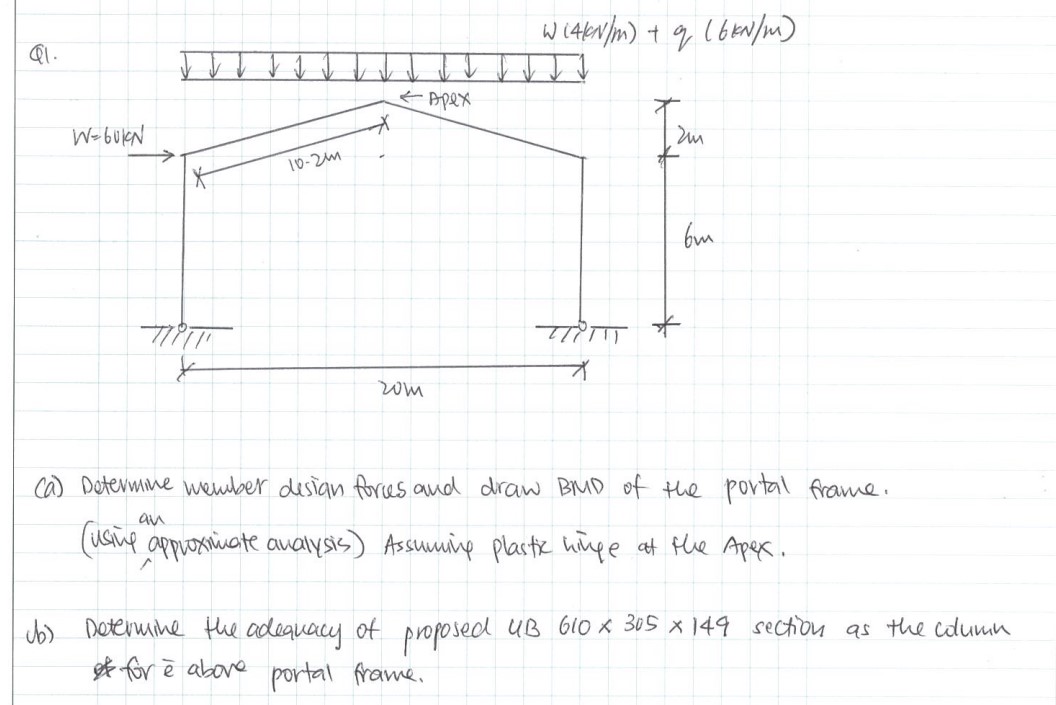 W (4kN/m) + q (6kN/m)
Q1.
← Apex
W=60kN
10.2m
2m
6m
20m
(a) Determine member design forces and draw BMD of the portal frame.
(using an approximate analysis) Assuming plastic hinge at the Apex.
(b) Determine the adequacy of proposed UB 610 x 305 x 149 section as the column
for ē above portal frame.